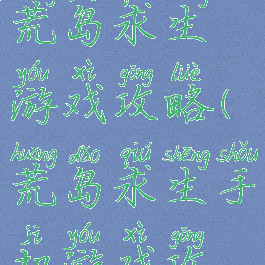 荒岛求生
yóu xì gōng lüè
游戏攻略(
huāng dǎo qiú shēng shǒu
荒岛求生手
jī yóu xì gōng
机游戏攻